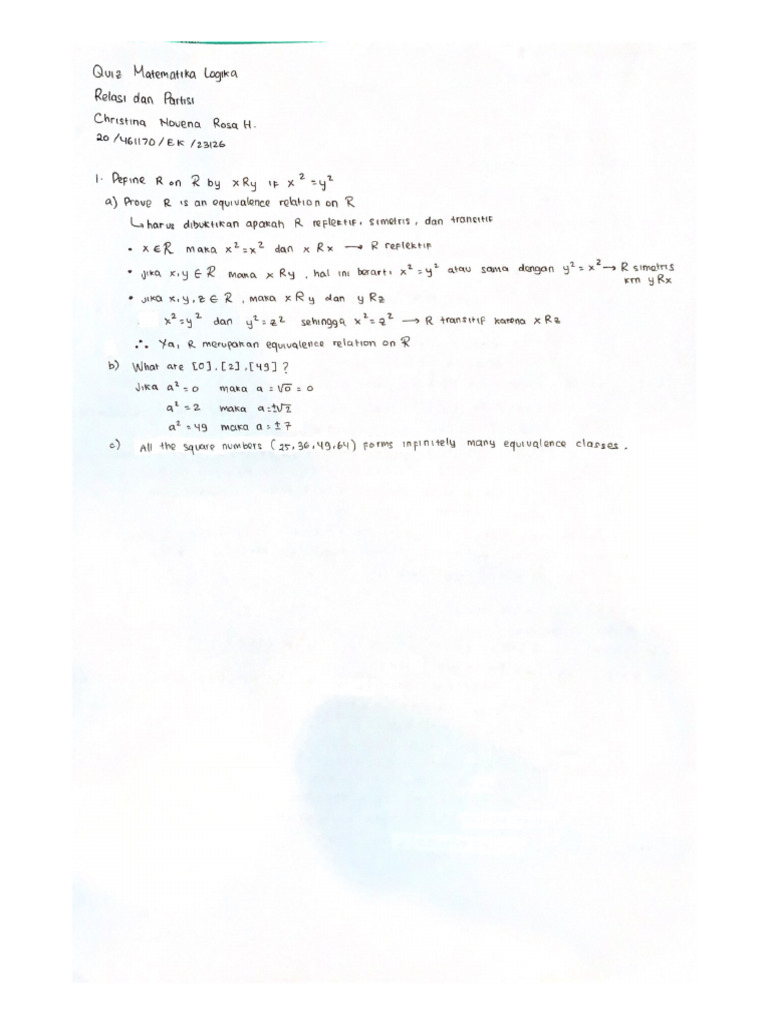 Quiz Matematika Logika
Relasi dan Partisi
Christina Novena Rosa H.
20/461170/EK/23126
1. Define R on ℝ by xRy if x² = y²
a) Prove R is an equivalence relation on ℝ
↳ harus dibuktikan apakah R reflektif, simetris, dan transitif
• x ∈ ℝ maka x² = x² dan xRx → R reflektif
• Jika x,y ∈ ℝ maka xRy, hal ini berarti x² = y² atau sama dengan y² = x² → R simetris
krn yRx
• Jika x,y,z ∈ ℝ, maka xRy dan yRz
x² = y² dan y² = z² sehingga x² = z² → R transitif karena xRz
∴ Ya, R merupakan equivalence relation on ℝ
b) What are [0], [2], [49]?
Jika a² = 0 maka a = √0 = 0
a² = 2 maka a = ±√2
a² = 49 maka a = ± 7
c) All the square numbers (25, 36, 49, 64) forms infinitely many equivalence classes.